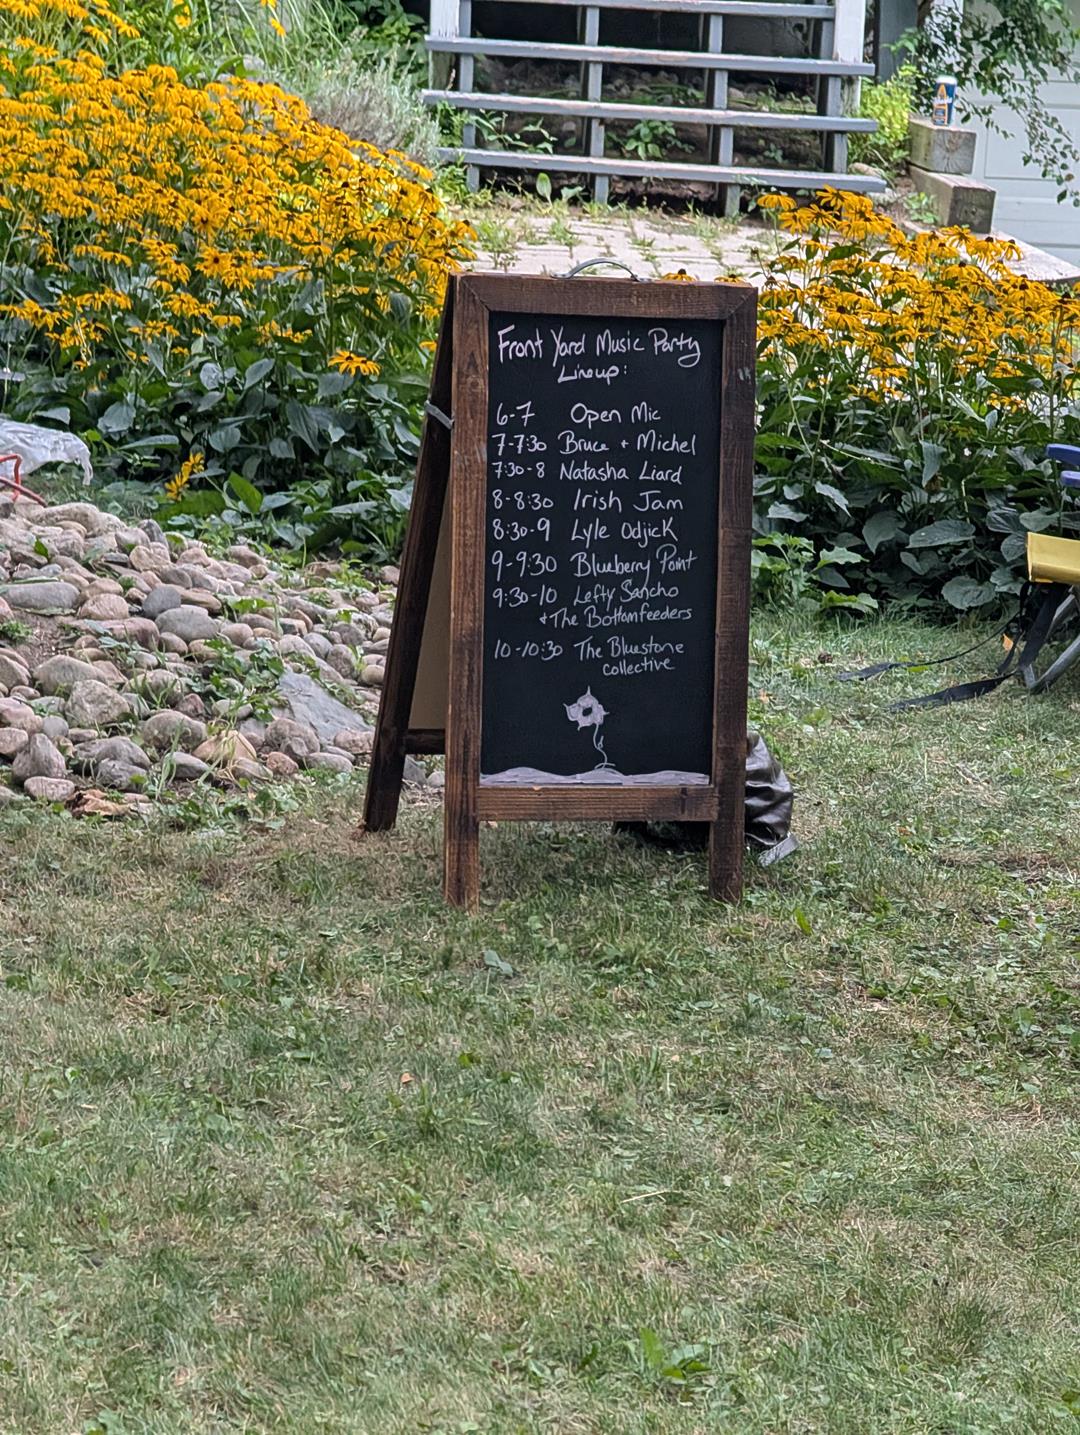 Front Yard Music Party
Lineup:
6-7 Open Mic
7-7:30 Bruce + Michel
7:30-8 Natasha Liard
8-8:30 Irish Jam
8:30-9 Lyle Odjick
9-9:30 Blueberry Point
9:30-10 Lefty Sancho
+ The Bottomfeeders
10-10:30 The Bluestone
collective